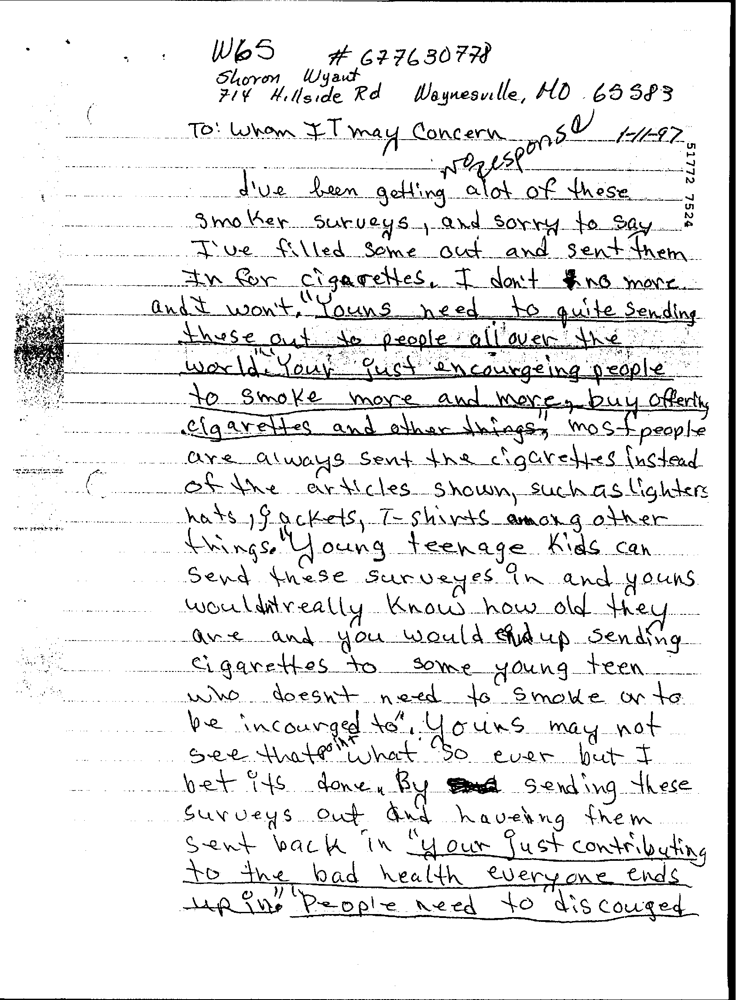 W65 # 677630778
Sharon Wyant
714 Hillside Rd Waynesville, MO 65583
To: Whom IT may Concern 1-11-97
no response
51772 7524
I've been getting alot of these
smoker surveys, and sorry to say
I've filled some out and sent them
In for cigarettes. I don't no more
and I won't. "Youns need to quite sending
these out to people all over the
world." "Your just encourgeing people
to smoke more and more, buy offering
cigarettes and other things", most people
are always sent the cigarettes instead
of the articles shown, such as lighters
hats, jackets, T-shirts among other
things. "Young teenage kids can
send these surveyes in and youns
wouldnt really know how old they
are and you would end up sending
cigarettes to some young teen
who doesnt need to smoke or to
be incourged to". Youns may not
see that point what so ever but I
bet its done. By sending these
surveys out and haveing them
sent back in "your just contributing
to the bad health everyone ends
up in." "People need to discouged